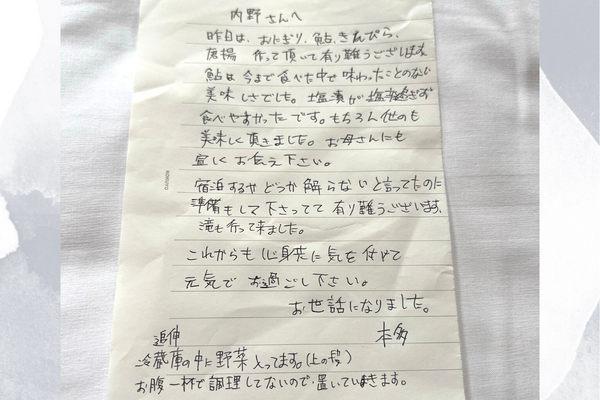 内野さんへ
昨日は、おにぎり、鮎、きんぴら、
唐揚 作って頂いて有り難うございます。
鮎は今まで食べた中で味わったことのない
美味しさでした。塩漬が塩過ぎず
食べやすかったです。もちろん他のも
美味しく頂きました。お母さんにも
宜しくお伝え下さい。
宿泊するかどうか解らないと言ってたのに
準備もして下さってて有り難うございます。
滝も行って来ました。
これからも心身共に気を付けて
元気でお過ごし下さい。
お世話になりました。
本多
追伸
冷蔵庫の中に野菜入ってます。(上の段)
お腹一杯で調理してないので置いていきます。